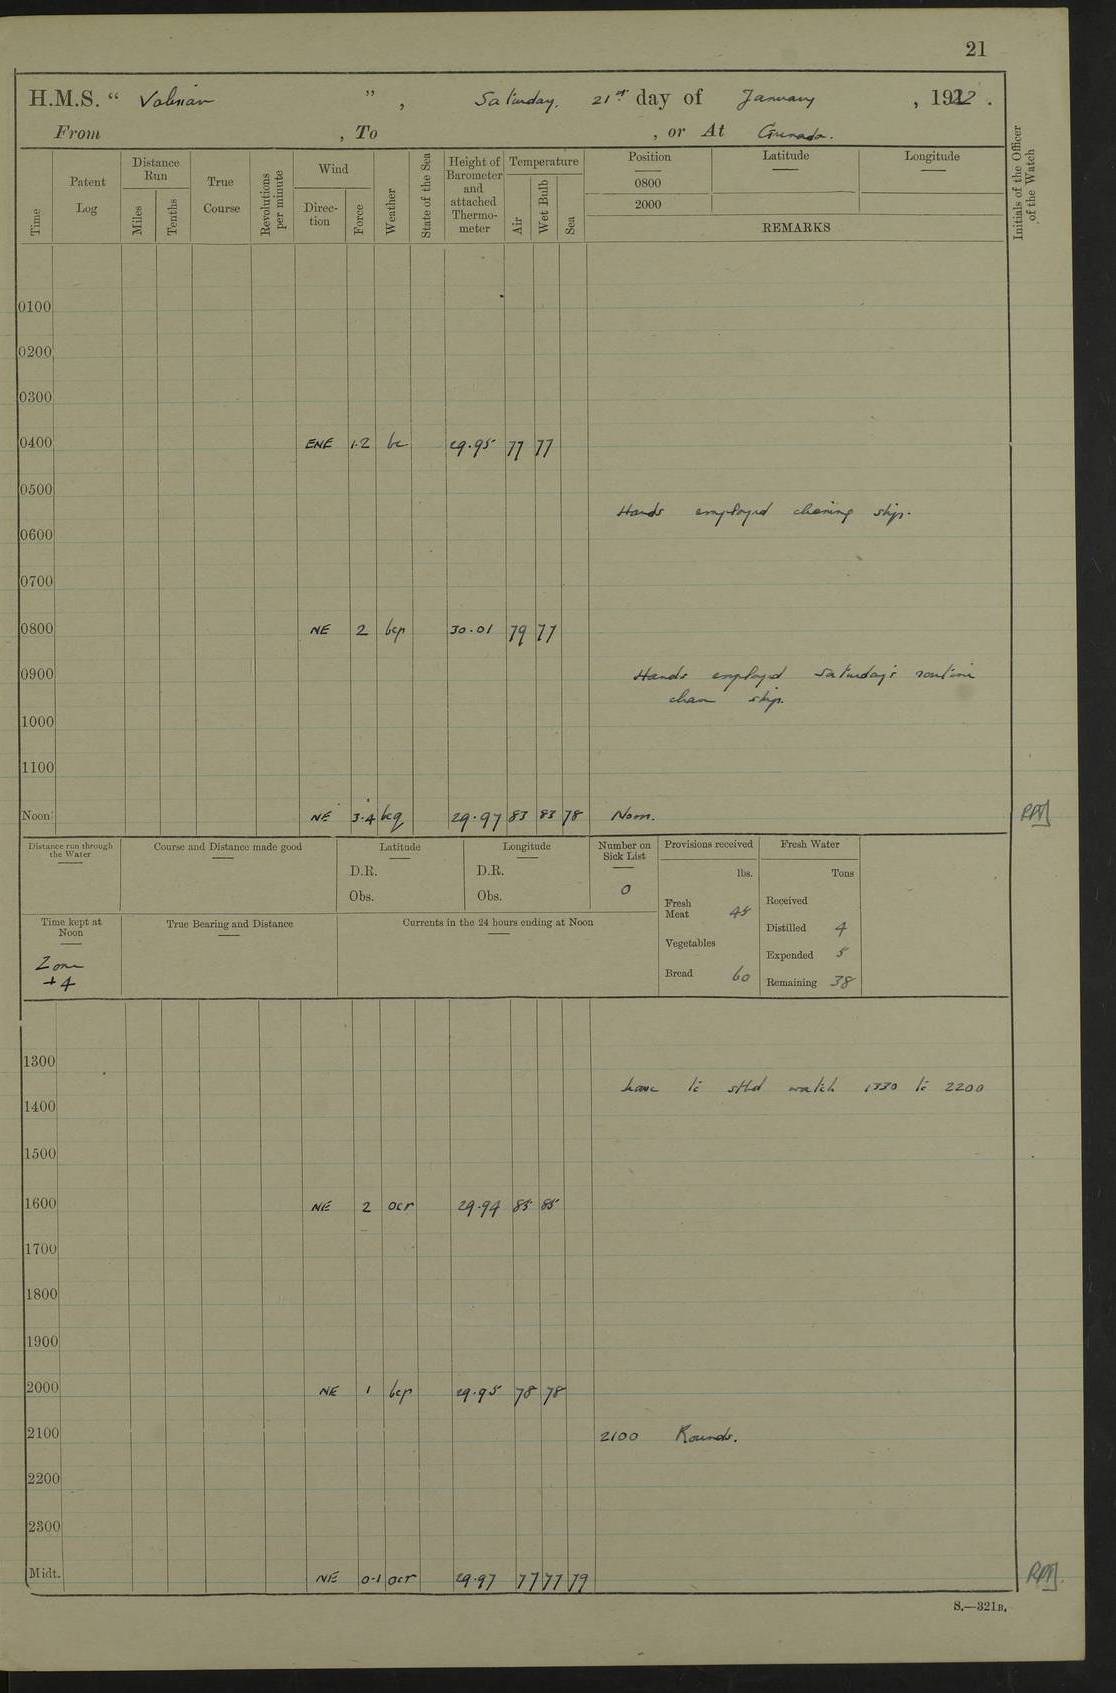 21
H.M.S. “ Valerian ” , Saturday, 21st day of January , 1922 .
From , To , or At Grenada.
Time
Patent Log
Distance Run
Miles
Tenths
True Course
Revolutions per minute
Wind
Direction
Force
Weather
State of the Sea
Height of Barometer and attached Thermometer
Temperature
Air
Wet Bulb
Sea
Position Latitude Longitude
0800
2000
REMARKS
Initials of the Officer of the Watch
0100
0200
0300
0400 ENE 1.2 bc 29.95 77 77
0500
Hands employed cleaning ship.
0600
0700
0800 NE 2 bcp 30.01 79 77
0900 Hands employed Saturday's routine
clean ship.
1000
1100
Noon NE 3.4 bcq 29.97 83 83 78 Noon.
Distance run through the Water
Course and Distance made good
Latitude
D.R.
Obs.
Longitude
D.R.
Obs.
Number on Sick List
0
Provisions received
lbs.
Fresh Meat 45
Vegetables
Bread 60
Fresh Water
Tons
Received
Distilled 4
Expended 5
Remaining 38
Time kept at Noon
Zone
+4
True Bearing and Distance
Currents in the 24 hours ending at Noon
1300
leave to stbd watch 1330 to 2200
1400
1500
1600 NE 2 ocr 29.94 85 85
1700
1800
1900
2000 NE 1 bcp 29.95 78 78
2100 2100 Rounds.
2200
2300
Midt. NE 0.1 ocr 29.97 77 77 79
S.—321B.